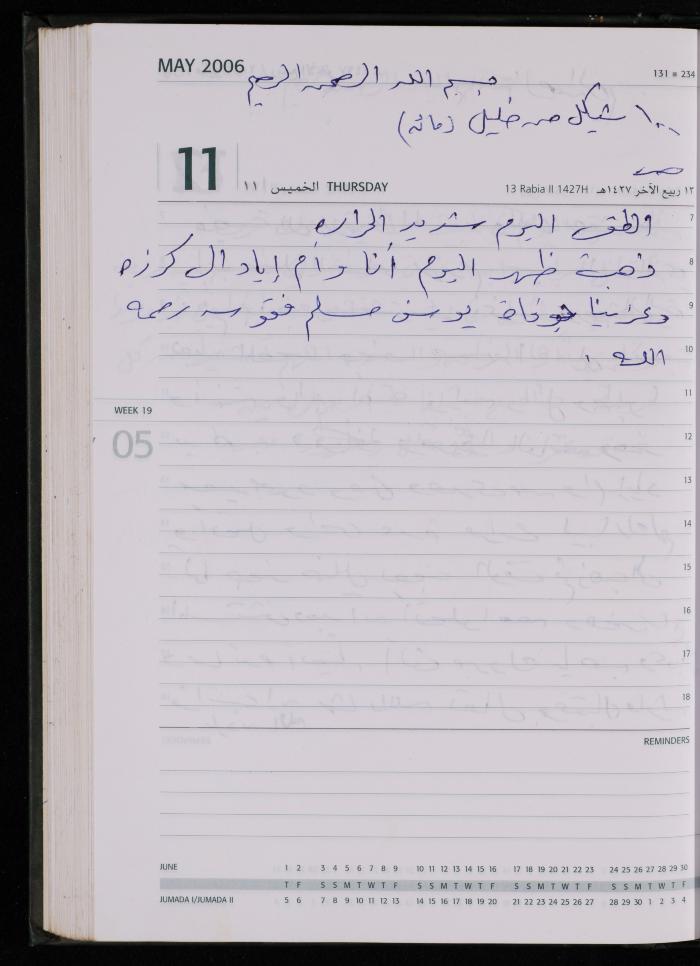 MAY 2006
131 ■ 234
بسم الله الرحمن الرحيم
١٠٠ شيكل من خليل (مائة)
11
١١ الخميس THURSDAY
13 Rabia II 1427H ١٣ ربيع الآخر ١٤٢٧هـ
7
الطقس اليوم شديد الحرارة
8
ذهبت ظهر اليوم أنا وأم إياد ال كرزه
9
وعزينا بوفاة يوسف مسلم فقوسه رحمه
10
الله .
11
WEEK 19
05
12
13
14
15
16
17
18
REMINDERS
JUNE 1 2 3 4 5 6 7 8 9 10 11 12 13 14 15 16 17 18 19 20 21 22 23 24 25 26 27 28 29 30
T F S S M T W T F S S M T W T F S S M T W T F S S M T W T F
JUMADA I/JUMADA II 5 6 7 8 9 10 11 12 13 14 15 16 17 18 19 20 21 22 23 24 25 26 27 28 29 30 1 2 3 4